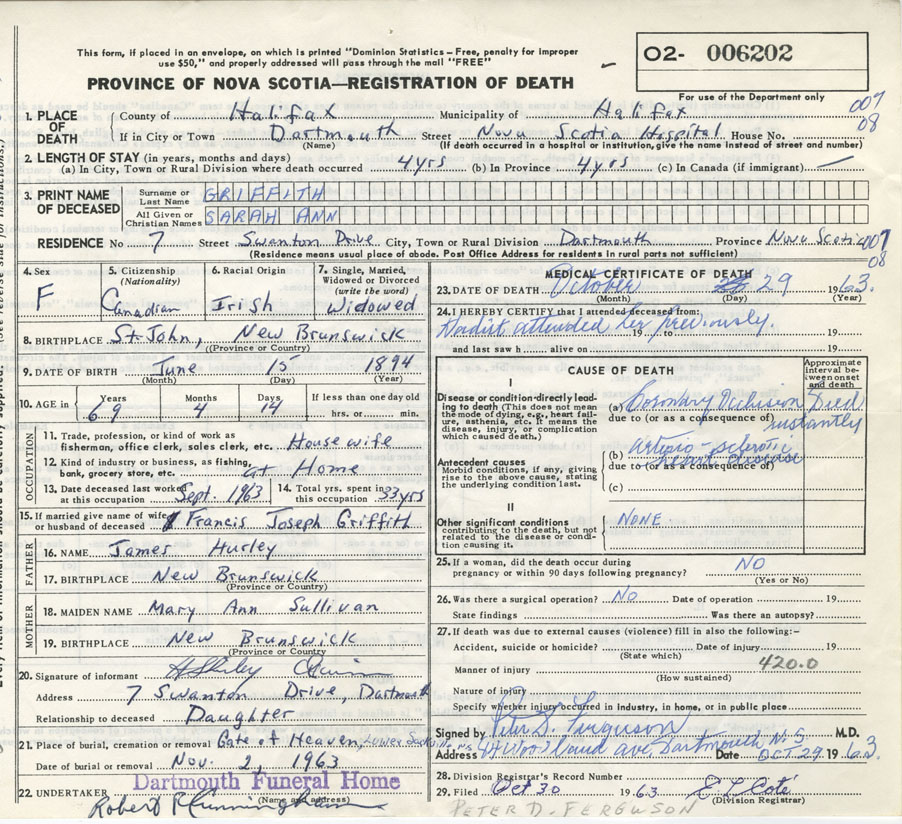 This form, if placed in an envelope, on which is printed "Dominion Statistics – Free, penalty for improper
use $50," and properly addressed will pass through the mail "FREE"
PROVINCE OF NOVA SCOTIA—REGISTRATION OF DEATH
O2- 006202
For use of the Department only
007
08
1. PLACE OF DEATH
County of Halifax Municipality of Halifax
If in City or Town Dartmouth Street Nova Scotia Hospital House No.
(Name) (If death occurred in a hospital or institution, give the name instead of street and number)
2. LENGTH OF STAY (in years, months and days)
(a) In City, Town or Rural Division where death occurred 4 yrs (b) In Province 4 yrs (c) In Canada (if immigrant) —
3. PRINT NAME OF DECEASED
Surname or Last Name GRIFFITH
All Given or Christian Names SARAH ANN
RESIDENCE No 7 Street Swanton Drive City, Town or Rural Division Dartmouth Province Nova Scotia 007
08
(Residence means usual place of abode. Post Office Address for residents in rural parts not sufficient)
4. Sex F
5. Citizenship (Nationality) Canadian
6. Racial Origin Irish
7. Single, Married, Widowed or Divorced (write the word) Widowed
8. BIRTHPLACE St. John, New Brunswick
(Province or Country)
9. DATE OF BIRTH June 15 1894
(Month) (Day) (Year)
10. AGE in Years 69 Months 4 Days 14 If less than one day old hrs. or min.
OCCUPATION
11. Trade, profession, or kind of work as
fisherman, office clerk, sales clerk, etc. Housewife
12. Kind of industry or business, as fishing,
bank, grocery store, etc. at Home
13. Date deceased last worked at this occupation Sept. 1963
14. Total yrs. spent in this occupation 33 yrs
15. If married give name of wife
or husband of deceased Francis Joseph Griffith
FATHER
16. NAME James Hurley
17. BIRTHPLACE New Brunswick
(Province or Country)
MOTHER
18. MAIDEN NAME Mary Ann Sullivan
19. BIRTHPLACE New Brunswick
(Province or Country)
20. Signature of informant
Address 7 Swanton Drive, Dartmouth
Relationship to deceased Daughter
21. Place of burial, cremation or removal Gate of Heaven, Lower Sackville
Date of burial or removal Nov. 2, 1963
22. UNDERTAKER Dartmouth Funeral Home
(Name and address)
Robert P Cunningham
MEDICAL CERTIFICATE OF DEATH
23. DATE OF DEATH October 29 1963.
(Month) (Day) (Year)
24. I HEREBY CERTIFY that I attended deceased from:
attended her previously. 19 to 19
and last saw h alive on 19
CAUSE OF DEATH
Approximate interval between onset and death
I
Disease or condition directly leading to death (This does not mean the mode of dying, e.g., heart failure, asthenia, etc. It means the disease, injury, or complication which caused death.)
(a) Coronary Occlusion Died
due to (or as a consequence of) instantly
Antecedent causes
Morbid conditions, if any, giving rise to the above cause, stating the underlying condition last.
(b) arterio-sclerotic
due to (or as a consequence of)
(c)
II
Other significant conditions
contributing to the death, but not related to the disease or condition causing it.
NONE
25. If a woman, did the death occur during
pregnancy or within 90 days following pregnancy? NO
(Yes or No)
26. Was there a surgical operation? NO Date of operation 19
State findings Was there an autopsy?
27. If death was due to external causes (violence) fill in also the following:–
Accident, suicide or homicide? Date of injury 19
(State which)
420.0
Manner of injury
(How sustained)
Nature of injury
Specify whether injury occurred in industry, in home, or in public place
Signed by Peter D. Ferguson M.D.
Address Woodland ave, Dartmouth N.S. Date OCT 29 1963
28. Division Registrar's Record Number
29. Filed Oct 30 1963
(Division Registrar)
PETER D. FERGUSON